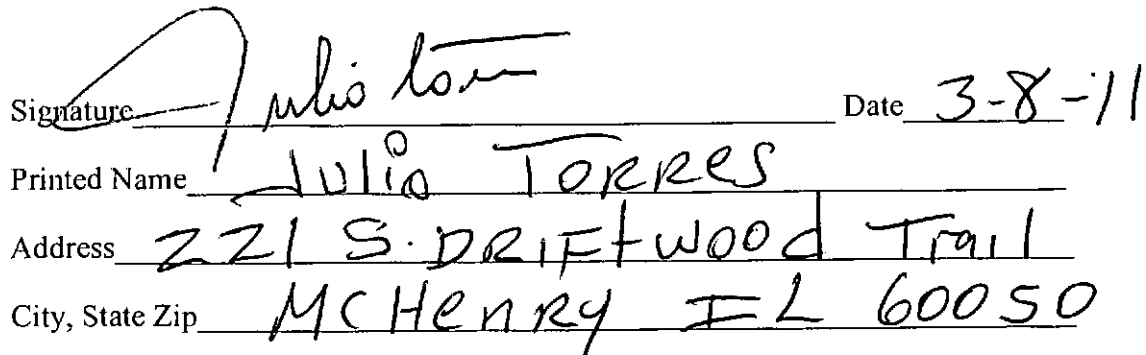 Signature Julio Torr Date 3-8-11
Printed Name Julio TORRes
Address 221 S. DRIFtwood Trail
City, State Zip MCHenRy IL 60050